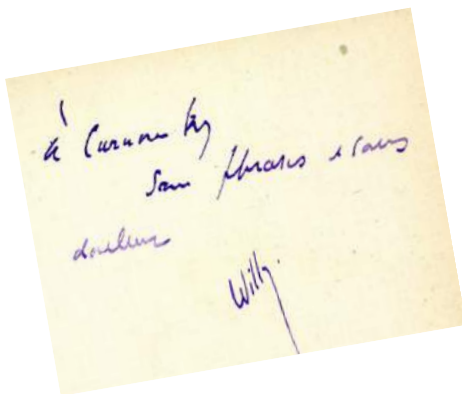 à Curnonsky
Sans phrases et sans
douleur
Willy.